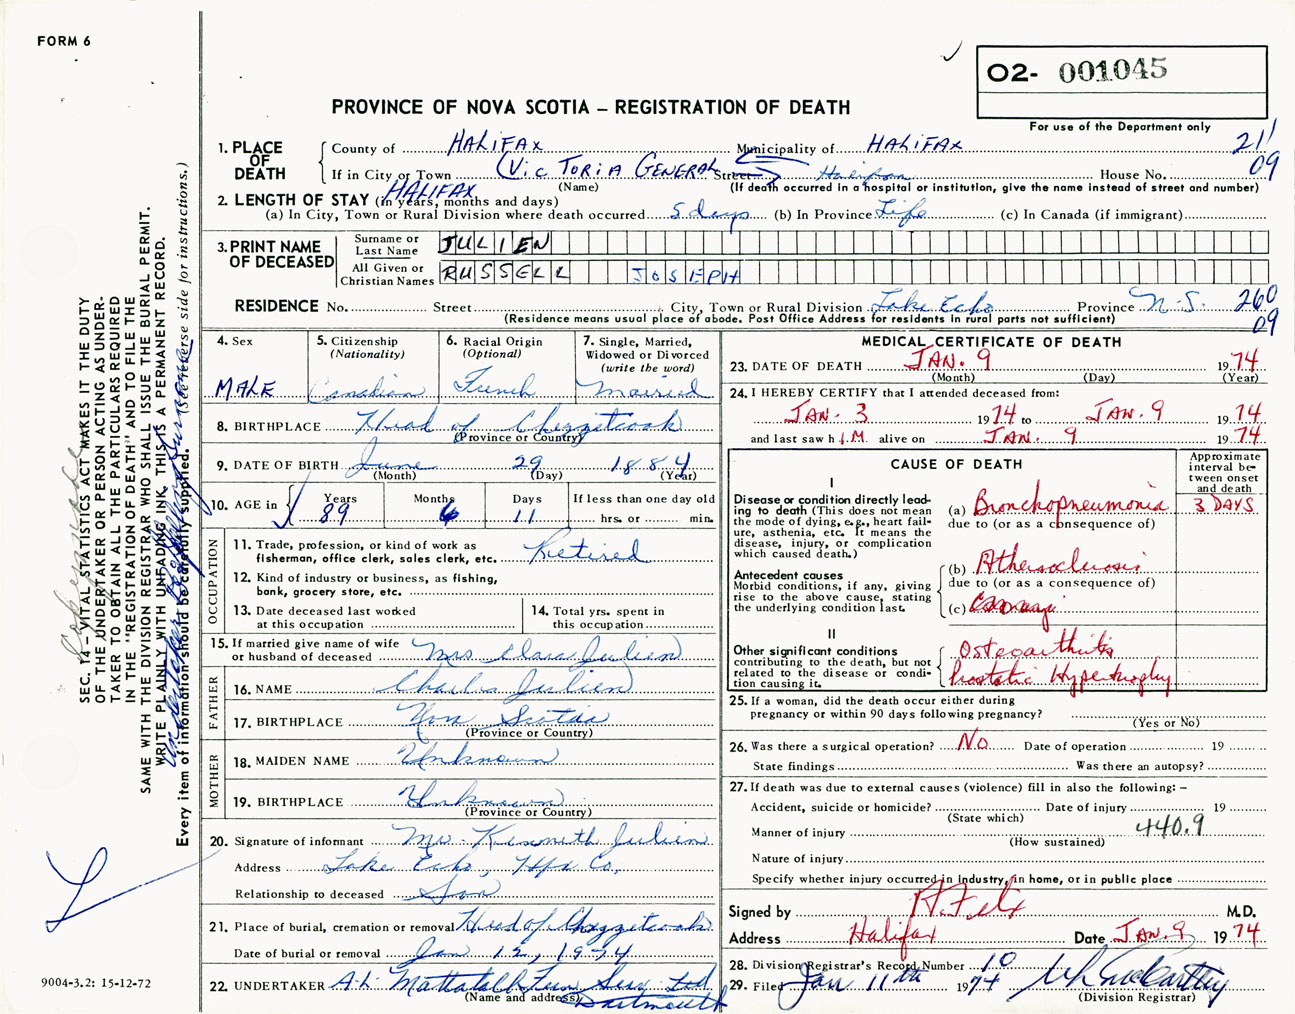 FORM 6
O2- 001045
PROVINCE OF NOVA SCOTIA – REGISTRATION OF DEATH
For use of the Department only
1. PLACE OF DEATH
County of HALIFAX Municipality of HALIFAX 211
If in City or Town (VICTORIA GENERAL Street House No. 09
(Name) (If death occurred in a hospital or institution, give the name instead of street and number)
HALIFAX
2. LENGTH OF STAY (in years, months and days)
(a) In City, Town or Rural Division where death occurred 5 days (b) In Province Life (c) In Canada (if immigrant)
3. PRINT NAME OF DECEASED
Surname or Last Name JULIEN
All Given or Christian Names RUSSELL JOSEPH
RESIDENCE No. Street City, Town or Rural Division Lake Echo Province N.S. 260
(Residence means usual place of abode. Post Office Address for residents in rural parts not sufficient) 09
4. Sex
MALE
5. Citizenship
(Nationality)
Canadian
6. Racial Origin
(Optional)
French
7. Single, Married,
Widowed or Divorced
(write the word)
Married
8. BIRTHPLACE Head of Chezzetcook
(Province or Country)
9. DATE OF BIRTH June 29 1884
(Month) (Day) (Year)
10. AGE in
Years Months Days If less than one day old
89 6 11 hrs. or min.
OCCUPATION
11. Trade, profession, or kind of work as
fisherman, office clerk, sales clerk, etc. Retired
12. Kind of industry or business, as fishing,
bank, grocery store, etc.
13. Date deceased last worked
at this occupation
14. Total yrs. spent in
this occupation
15. If married give name of wife
or husband of deceased Mrs Clara Julien
FATHER
16. NAME Charles Julien
17. BIRTHPLACE Nova Scotia
(Province or Country)
MOTHER
18. MAIDEN NAME Unknown
19. BIRTHPLACE Unknown
(Province or Country)
20. Signature of informant Mr. Kenneth Julien
Address Lake Echo, Hfx Co.
Relationship to deceased Son
21. Place of burial, cremation or removal Head of Chezzetcook
Date of burial or removal Jan 12, 1974
22. UNDERTAKER A.L. Mattatall Fun Serv Ltd
(Name and address) Dartmouth
MEDICAL CERTIFICATE OF DEATH
23. DATE OF DEATH JAN. 9 1974
(Month) (Day) (Year)
24. I HEREBY CERTIFY that I attended deceased from:
JAN. 3 1974 to JAN. 9 1974
and last saw h I.M. alive on JAN. 9 1974
CAUSE OF DEATH
Approximate
interval be-
tween onset
and death
I
Disease or condition directly lead-
ing to death (This does not mean
the mode of dying, e.g., heart fail-
ure, asthenia, etc. It means the
disease, injury, or complication
which caused death.)
(a) Bronchopneumonia 3 DAYS
due to (or as a consequence of)
Antecedent causes
Morbid conditions, if any, giving
rise to the above cause, stating
the underlying condition last.
(b) Atherosclerosis
due to (or as a consequence of)
(c)
II
Other significant conditions
contributing to the death, but not
related to the disease or condi-
tion causing it.
Osteoarthritis
Prostatic Hypertrophy
25. If a woman, did the death occur either during
pregnancy or within 90 days following pregnancy?
(Yes or No)
26. Was there a surgical operation? No Date of operation 19
State findings Was there an autopsy?
27. If death was due to external causes (violence) fill in also the following: –
Accident, suicide or homicide? Date of injury 19
(State which)
Manner of injury 440.9
(How sustained)
Nature of injury
Specify whether injury occurred in industry, in home, or in public place
Signed by M.D.
Address Halifax Date JAN. 9 1974
28. Division Registrar's Record Number 10
29. Filed Jan 11th 1974
(Division Registrar)
SEC. 14 – VITAL STATISTICS ACT MAKES IT THE DUTY
OF THE UNDERTAKER OR PERSON ACTING AS UNDER-
TAKER TO OBTAIN ALL THE PARTICULARS REQUIRED
IN THE "REGISTRATION OF DEATH" AND TO FILE THE
SAME WITH THE DIVISION REGISTRAR WHO SHALL ISSUE THE BURIAL PERMIT.
WRITE PLAINLY WITH UNFADING INK. THIS IS A PERMANENT RECORD.
Every item of information should be carefully supplied. (See reverse side for instructions.)
9004-3.2: 15-12-72